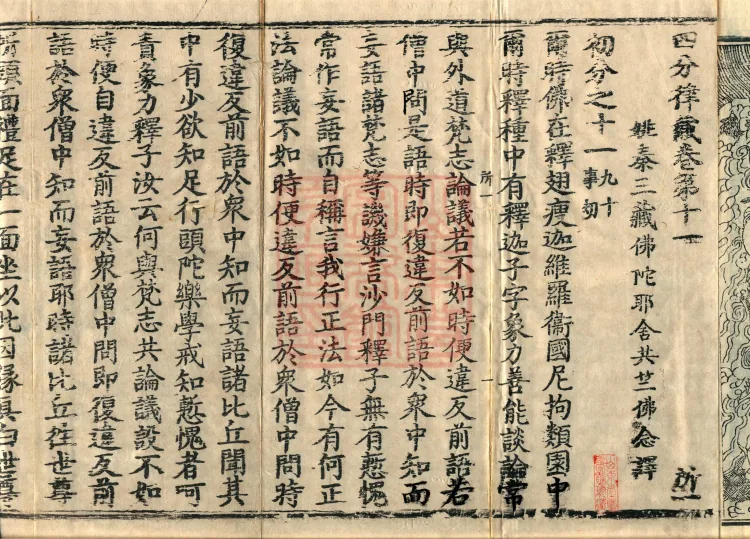 四分律藏卷第十一 所一
姚秦三藏佛陀耶舍共竺佛念譯
初分之十一 九十事初
爾時佛在釋翅瘦迦維羅衞國尼拘類園中
爾時釋種中有釋迦子字象力善能談論常
所一 一
與外道梵志論議若不如時便違反前語若
僧中問是語時即復違反前語於衆中知而
妄語諸梵志等譏嫌言沙門釋子無有慙愧
常作妄語而自稱言我行正法如今有何正
法論議不如時便違反前語於衆僧中問時
復違反前語於衆中知而妄語諸比丘聞其
中有少欲知足行頭陀樂學戒知慙愧者呵
責象力釋子汝云何與梵志共論議設不如
時便自違反前語於衆僧中問即復違反前
語於衆僧中知而妄語耶時諸比丘往世尊
頭面禮足在一面坐以此因緣具白世尊